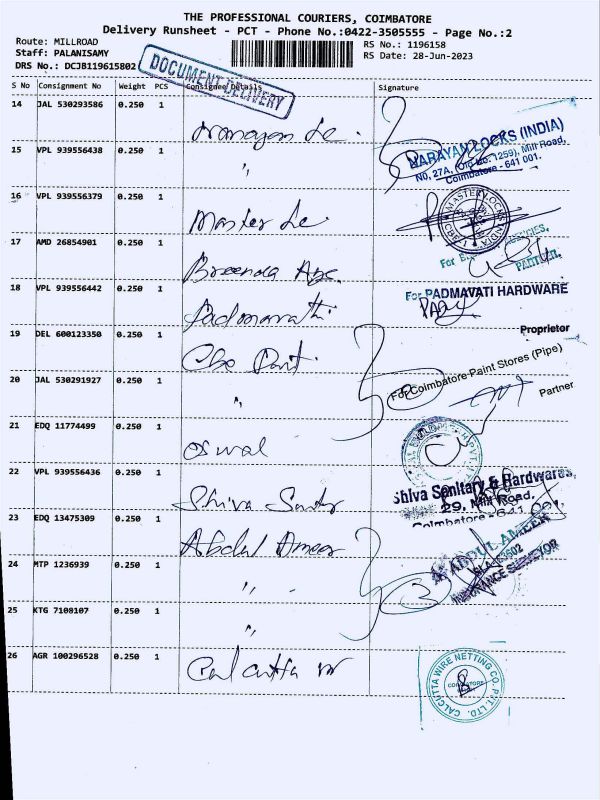 THE PROFESSIONAL COURIERS, COIMBATORE
Delivery Runsheet - PCT - Phone No.:0422-3505555 - Page No.:2
Route: MILLROAD
RS No.: 1196158
Staff: PALANISAMY
RS Date: 28-Jun-2023
DRS No.: DCJB119615802
DOCUMENT DELIVERY
S No Consignment No Weight PCS Consignee Details Signature
14 JAL 530293586 0.250 1
Narayan Lc.
NARAYAN LOCKS (INDIA)
NO, 27A, (Old No. 1259), Mill Road,
Coimbatore - 641 001.
15 VPL 939556438 0.250 1
"
16 VPL 939556379 0.250 1
Master Lc
MASTER LOCKS
17 AMD 26854901 0.250 1
For
18 VPL 939556442 0.250 1
Padmavathi
For PADMAVATI HARDWARE
Proprietor
19 DEL 600123350 0.250 1
Cbe Paint.
For Coimbatore Paint Stores (Pipe)
Partner
20 JAL 530291927 0.250 1
"
21 EDQ 11774499 0.250 1
Oswal
22 VPL 939556436 0.250 1
Shiva
Shiva Sanitary & Hardwares
29, Mill Road,
Coimbatore - 641 001.
23 EDQ 13475309 0.250 1
Abdul Ameen
ABDUL AMEEN
INSURANCE SURVEYOR
24 MTP 1236939 0.250 1
"
25 KTG 7108107 0.250 1
"
26 AGR 100296528 0.250 1
Calcutta W
CALCUTTA WIRE NETTING CO. PVT. LTD.
COIMBATORE